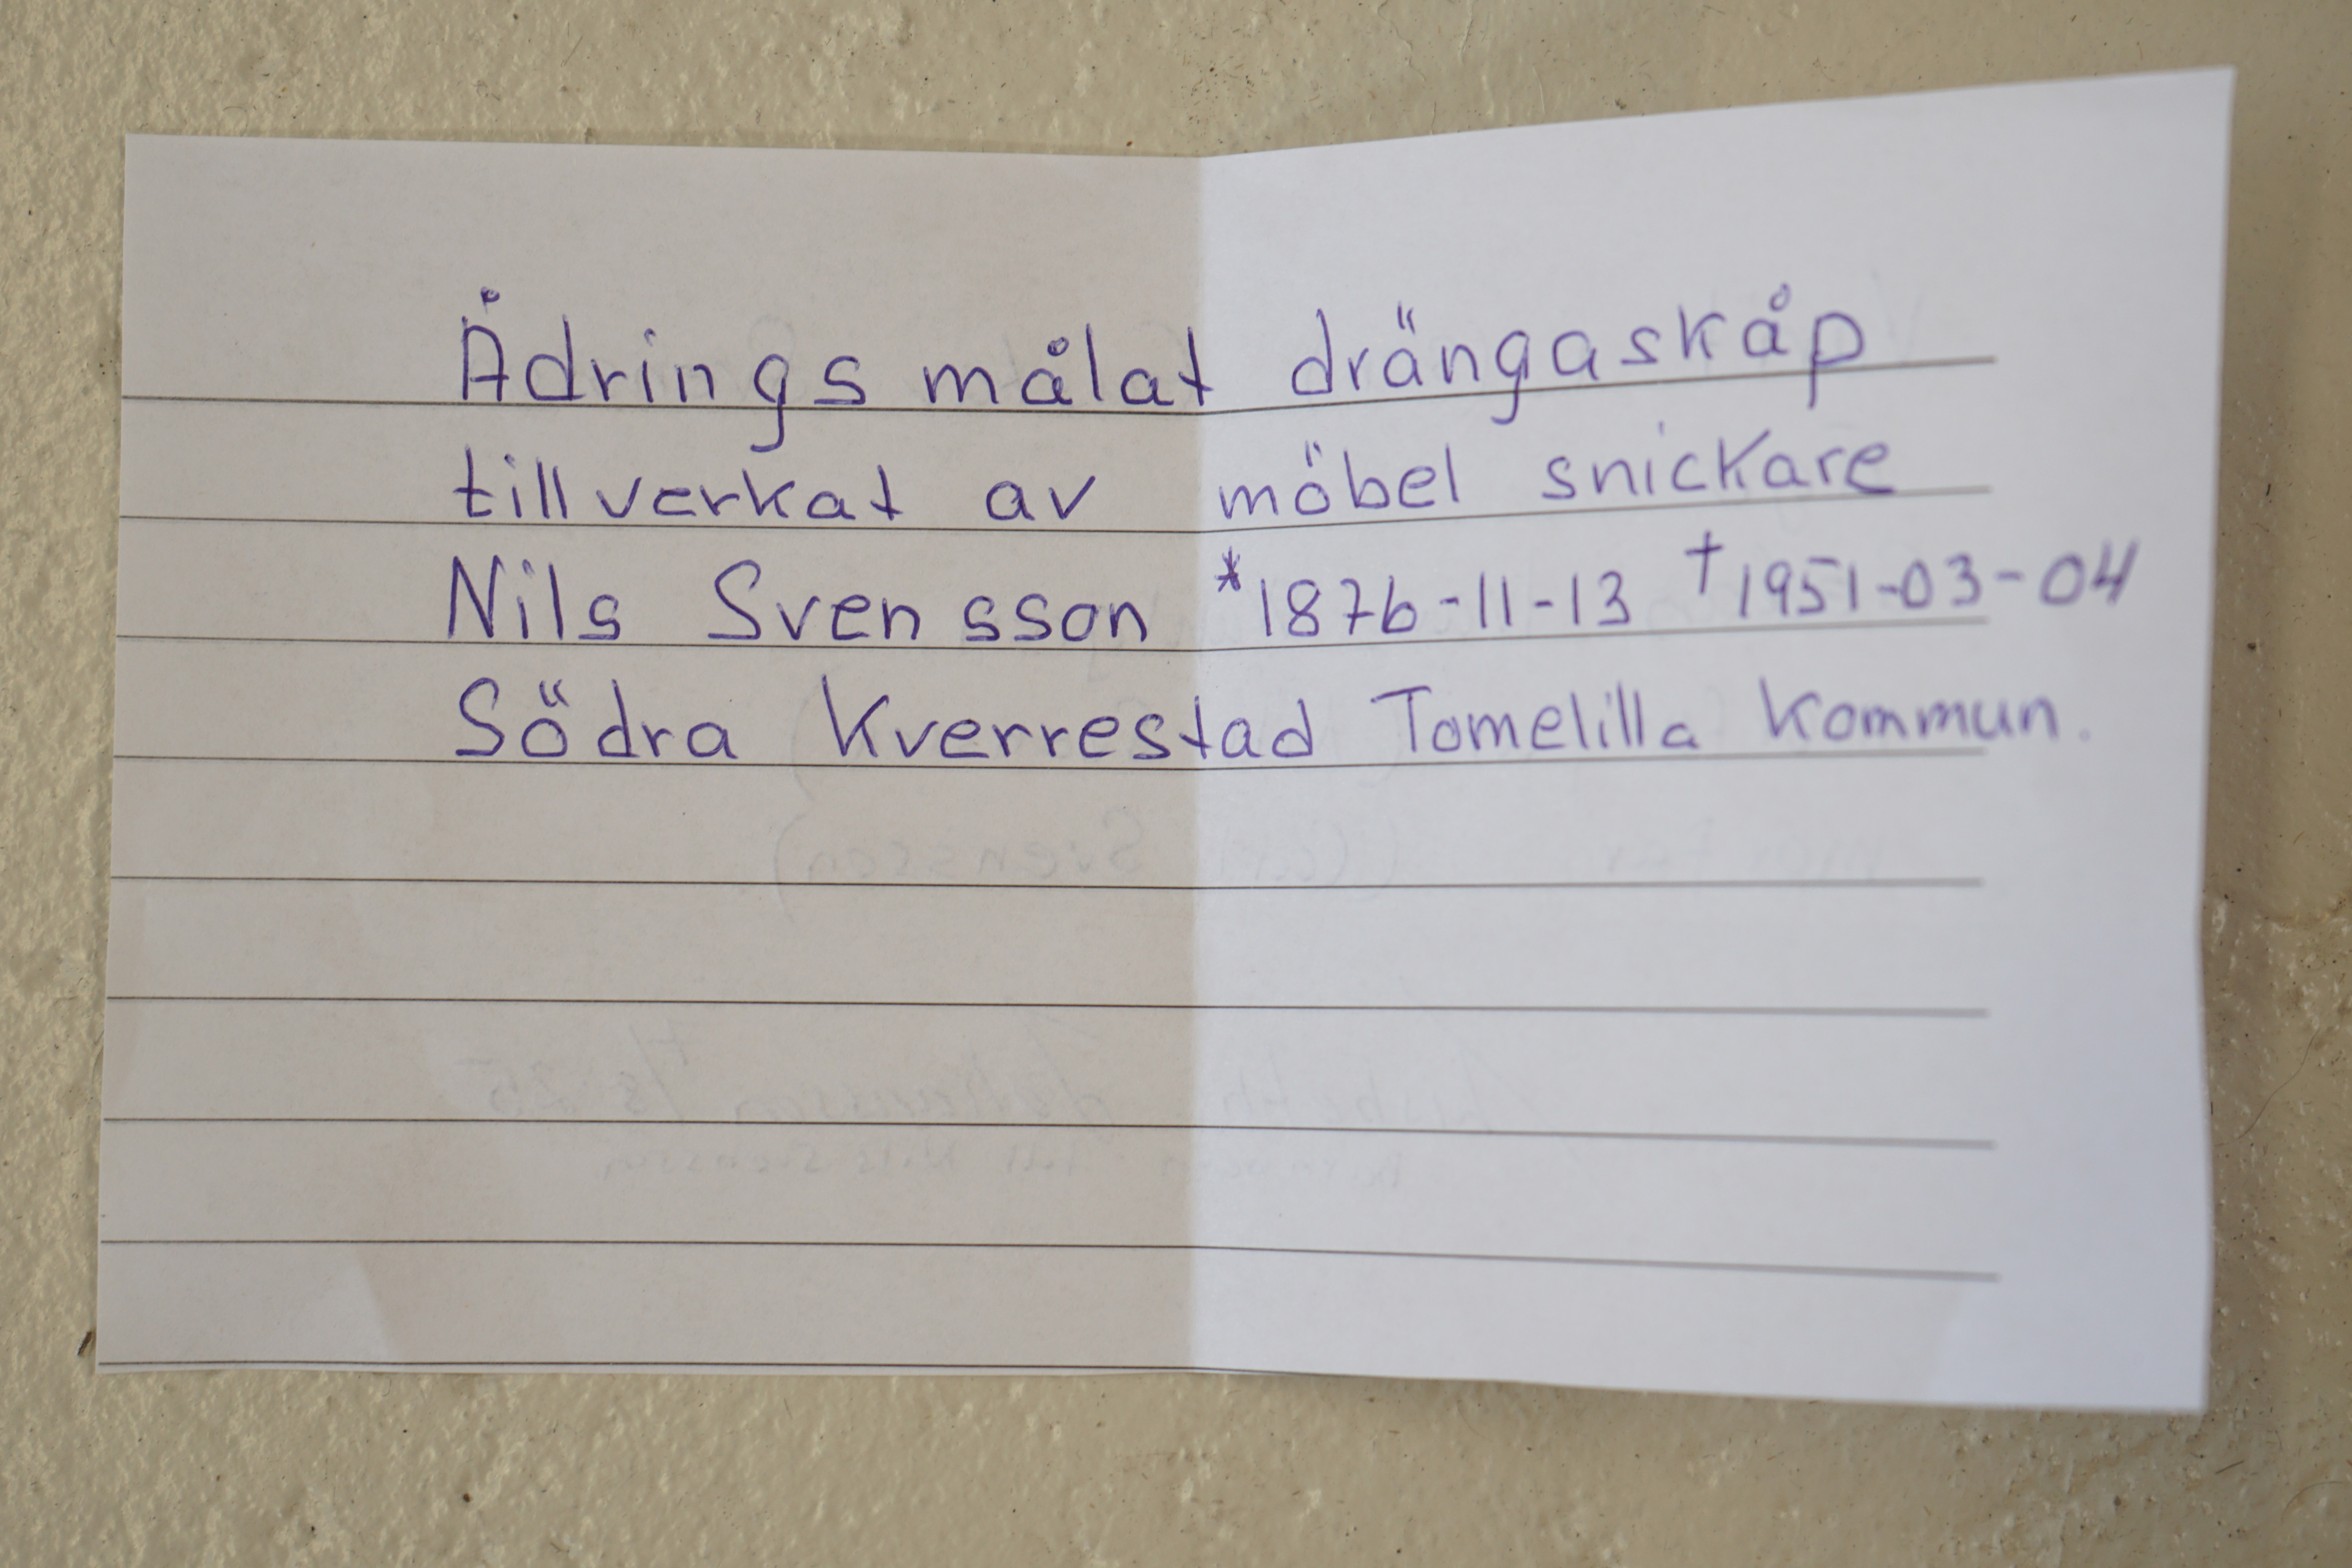 Ådrings målat drängaskåp
tillverkat av möbel snickare
Nils Svensson *1876-11-13 †1951-03-04
Södra Kverrestad Tomelilla Kommun.